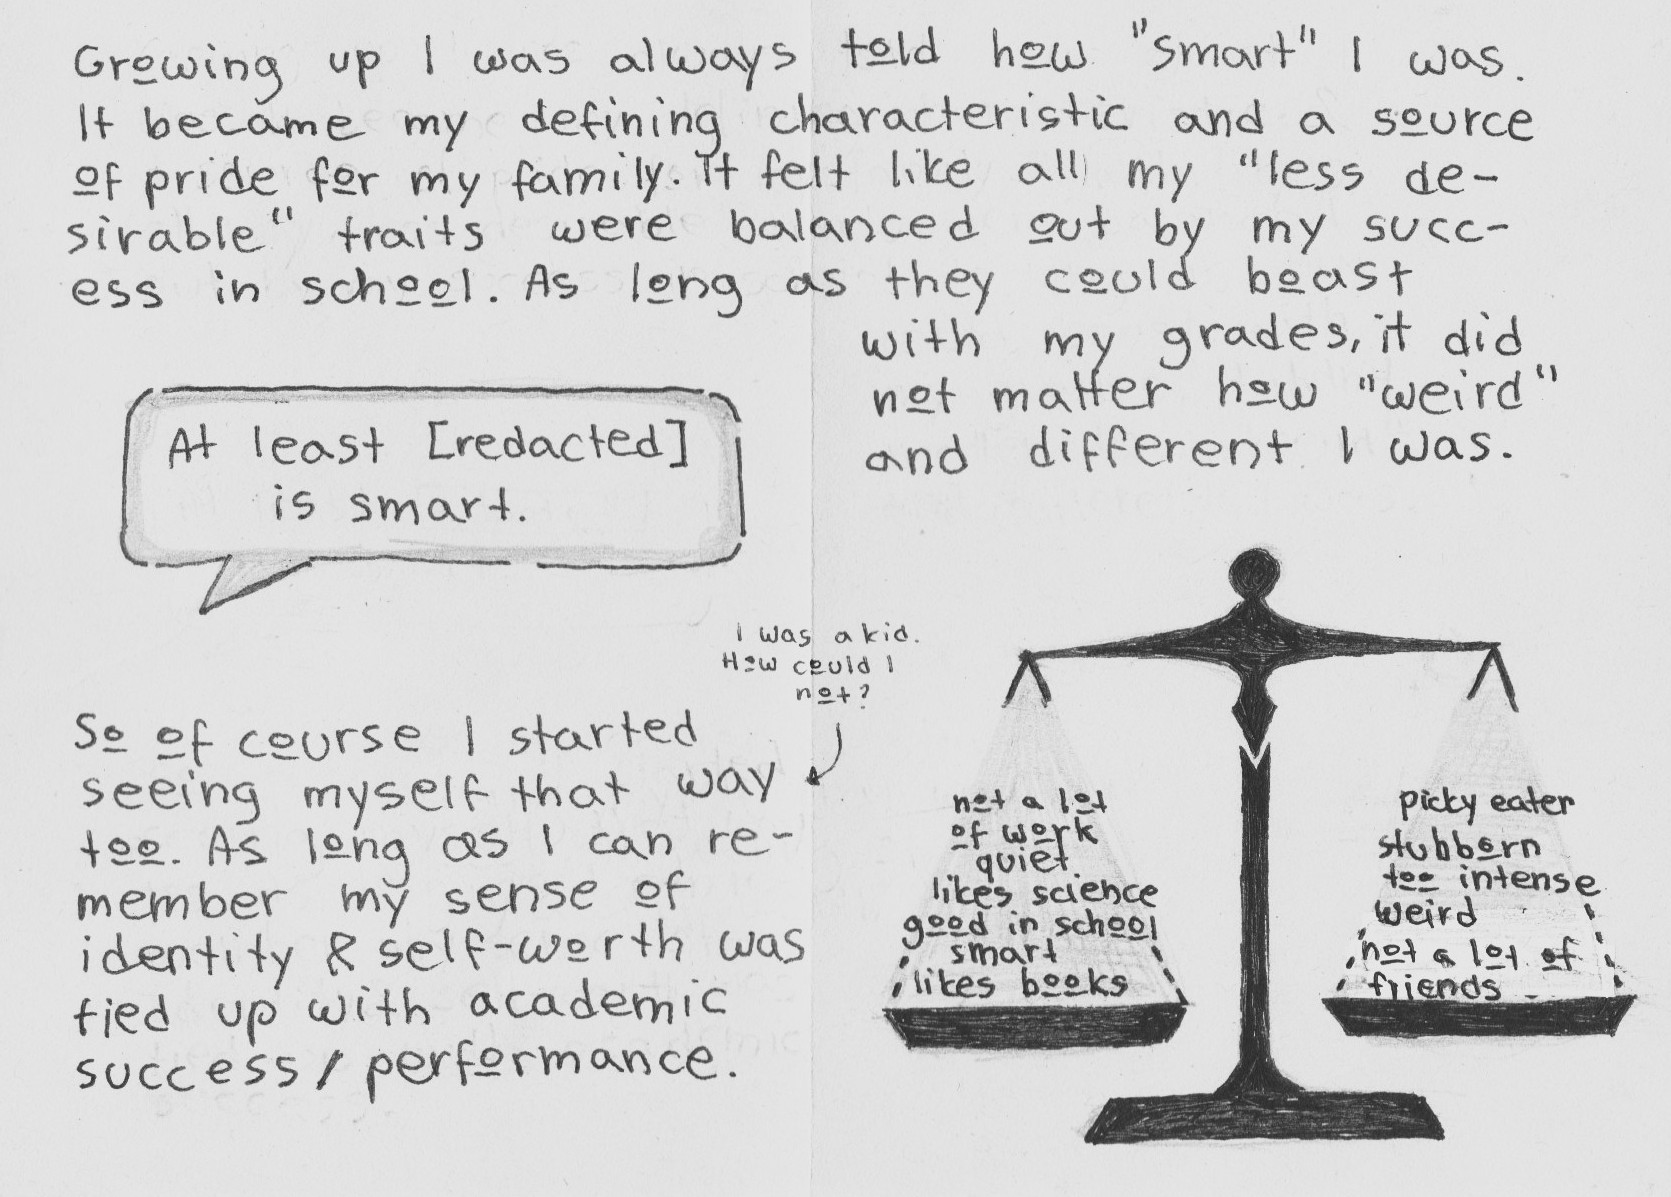 Growing up I was always told how "smart" I was.
It became my defining characteristic and a source
of pride for my family. It felt like all my "less de-
sirable" traits were balanced out by my succ-
ess in school. As long as they could boast
with my grades, it did
not matter how "weird"
and different I was.
At least [redacted]
is smart.
I was a kid.
How could I
not?
So of course I started
seeing myself that way
too. As long as I can re-
member my sense of
identity & self-worth was
tied up with academic
success / performance.
not a lot
of work
quiet
likes science
good in school
smart
likes books
picky eater
stubborn
too intense
weird
not a lot of
friends